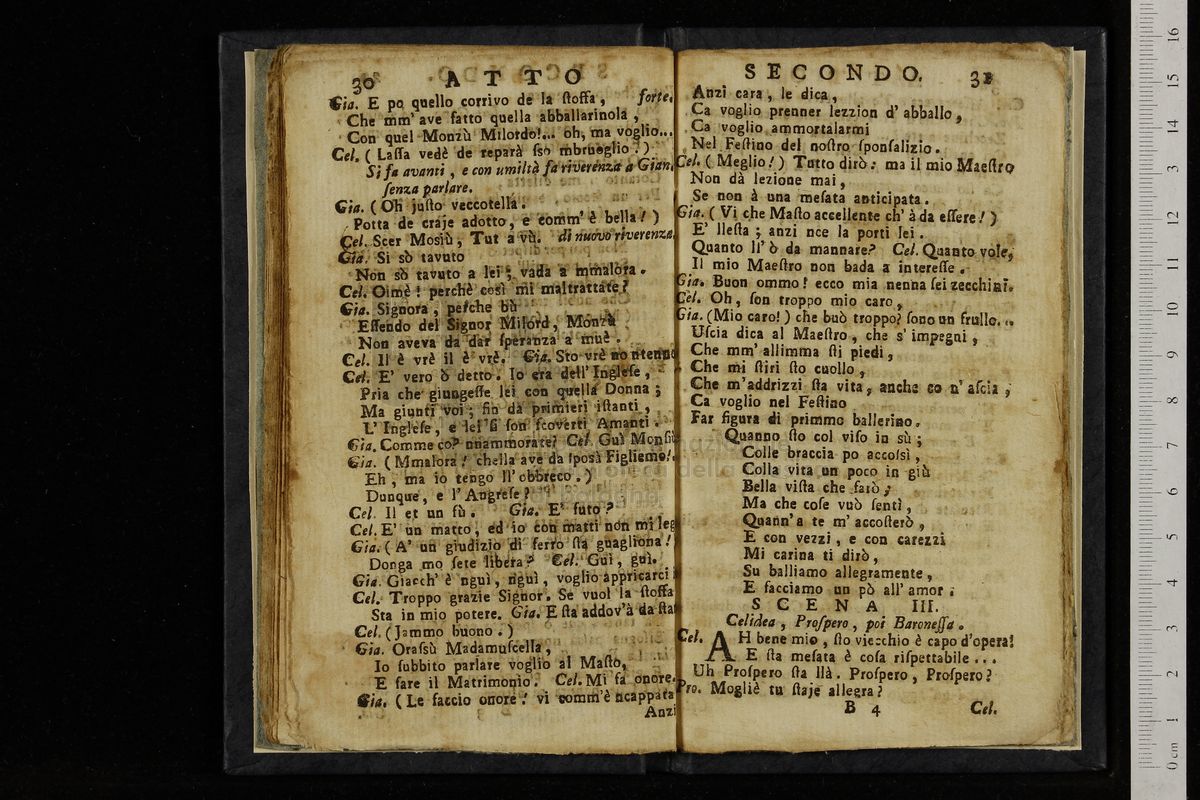 30 A T T O
Gia. E po quello corrivo de la ſtoffa, forte.
Che mm' ave fatto quella abballarinola,
Con quel Monzù Milordo!... oh, ma voglio...
Cel. ( Laſſa vedè de reparà ſso mbruoglio. )
Si fa avanti, e con umiltà fa riverenza a Gian.
ſenza parlare.
Gia. ( Oh juſto veccotella.
Potta de craje adotto, e comm' è bella! )
Cel. Scer Mosiù, Tut a vù. di nuovo riverenza.
Gia. Si sò tavuto
Non sò tavuto a lei; vada a mmalora.
Cel. Oimè! perchè così mi maltrattate?
Gia. Signora, perche bù
Eſſendo del Signor Milord, Monzù
Non aveva da dar ſperanza a muè.
Cel. Il è vrè il è vrè. Gia. Sto vrè no ntenno
Cel. E' vero ò detto. Io era dell' Ingleſe,
Pria che giungeſſe lei con quella Donna;
Ma giunti voi; fin da primieri iſtanti,
L' Ingleſe, e lei ſi ſon ſcoverti Amanti.
Gia. Comme co? nnammorate? Cel. Guì Monſiù
Gia. ( Mmalora! chella ave da ſposà Figliemo!.
Eh, ma io tengo ll' obbreco. )
Dunque, e l' Angreſe?
Cel. Il et un fù. Gia. E' futo?
Cel. E' un matto, ed io con matti non mi leg
Gia. ( A' un giudizio di ferro ſta guagliona!
Donga mo ſete libera? Cel. Guì, guì.
Gia. Giacch' è nguì, nguì, voglio appricarci
Cel. Troppo grazie Signor. Se vuol la ſtoffa
Sta in mio potere. Gia. E ſta addov'à da ſta
Cel. ( Jammo buono. )
Gia. Oraſsù Madamuſcella,
Io ſubbito parlare voglio al Maſto,
E fare il Matrimonio. Cel. Mi fa onore.
Gia. ( Le faccio onore! vi comm'è ncappata
Anzi
S E C O N D O. 31
Anzi cara, le dica,
Ca voglio prenner lezzion d' abballo,
Ca voglio ammortalarmi
Nel Feſtino del noſtro ſponſalizio.
Cel. ( Meglio! ) Tutto dirò: ma il mio Maeſtro
Non dà lezione mai,
Se non à una meſata anticipata.
Gia. ( Vi che Maſto accellente ch' à da eſſere! )
E' lleſta; anzi nce la porti lei.
Quanto ll' ò da mannare? Cel. Quanto vole,
Il mio Maeſtro non bada a intereſſe.
Gia. Buon ommo! ecco mia nenna ſei zecchini.
Cel. Oh, ſon troppo mio caro,
Gia. (Mio caro!) che buò troppo? ſono un frullo...
Uſcia dica al Maeſtro, che s' impegni,
Che mm' allimma ſti piedi,
Che mi ſtiri ſto cuollo,
Che m'addrizzi ſta vita, anche co n' aſcia,
Ca voglio nel Feſtino
Far figura di primmo ballerino.
Quanno ſto col viſo in sù;
Colle braccia po accoſsì,
Colla vita un poco in giù
Bella viſta che farò;
Ma che coſe vuò ſentì,
Quann'a te m' accoſterò,
E con vezzi, e con carezzi
Mi carina ti dirò,
Su balliamo allegramente,
E facciamo un pò all' amor.
S C E N A III.
Celidea, Proſpero, poi Baroneſſa.
Cel. AH bene mio, ſto viecchio è capo d'opera!
E ſta meſata è coſa riſpettabile...
Uh Proſpero ſta llà. Proſpero, Proſpero?
Pro. Mogliè tu ſtaje allegra?
B 4 Cel.